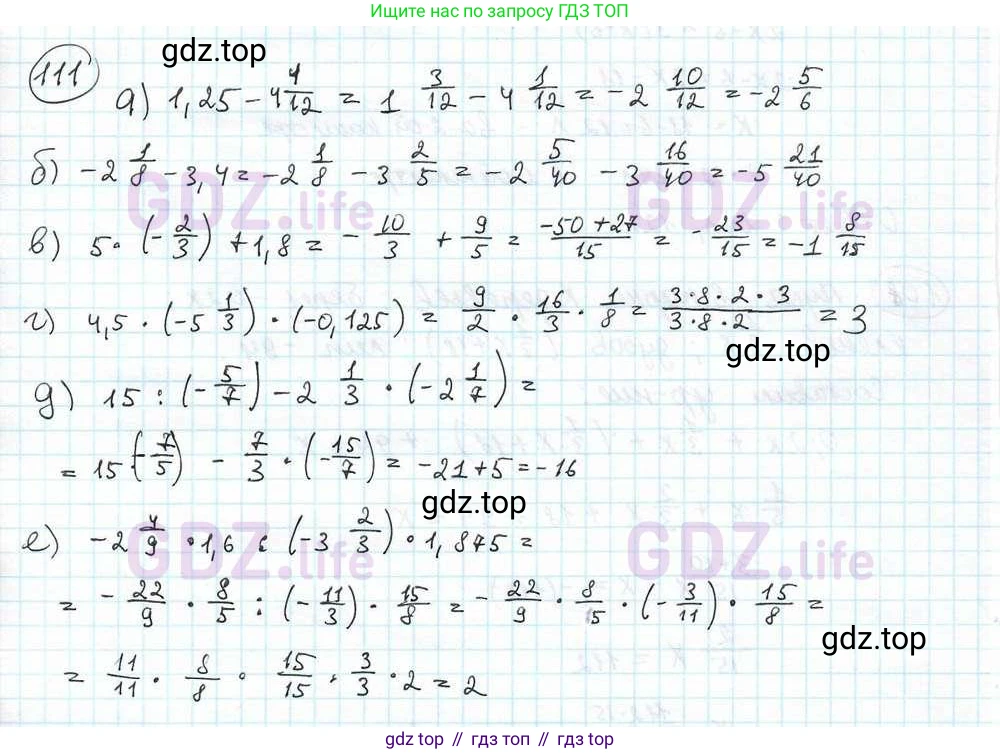 Ищите ответы по запросу ГДЗ ТОП
gdz.top
111
а) 1,25 - 4 1/12 = 1 3/12 - 4 1/12 = -2 10/12 = -2 5/6
б) -2 1/8 - 3,4 = -2 1/8 - 3 2/5 = -2 5/40 - 3 16/40 = -5 21/40
GDZ.life GDZ.life
в) 5 · (-2/3) + 1,8 = -10/3 + 9/5 = (-50 + 27)/15 = -23/15 = -1 8/15
г) 4,5 · (-5 1/3) · (-0,125) = 9/2 · 16/3 · 1/8 = (3·8·2·3)/(3·8·2) = 3
gdz.top
д) 15 : (-5/7) - 2 1/3 · (-2 1/7) =
= 15 · (-7/5) - 7/3 · (-15/7) = -21 + 5 = -16
gdz.top
е) -2 4/9 · 1,6 : (-3 2/3) · 1,875 =
GDZ.life GDZ.life
= -22/9 · 8/5 : (-11/3) · 15/8 = -22/9 · 8/5 · (-3/11) · 15/8 =
gdz.top
= 11/11 · 8/8 · 15/15 · 3/3 · 2 = 2
gdz top // гдз топ // gdz.top